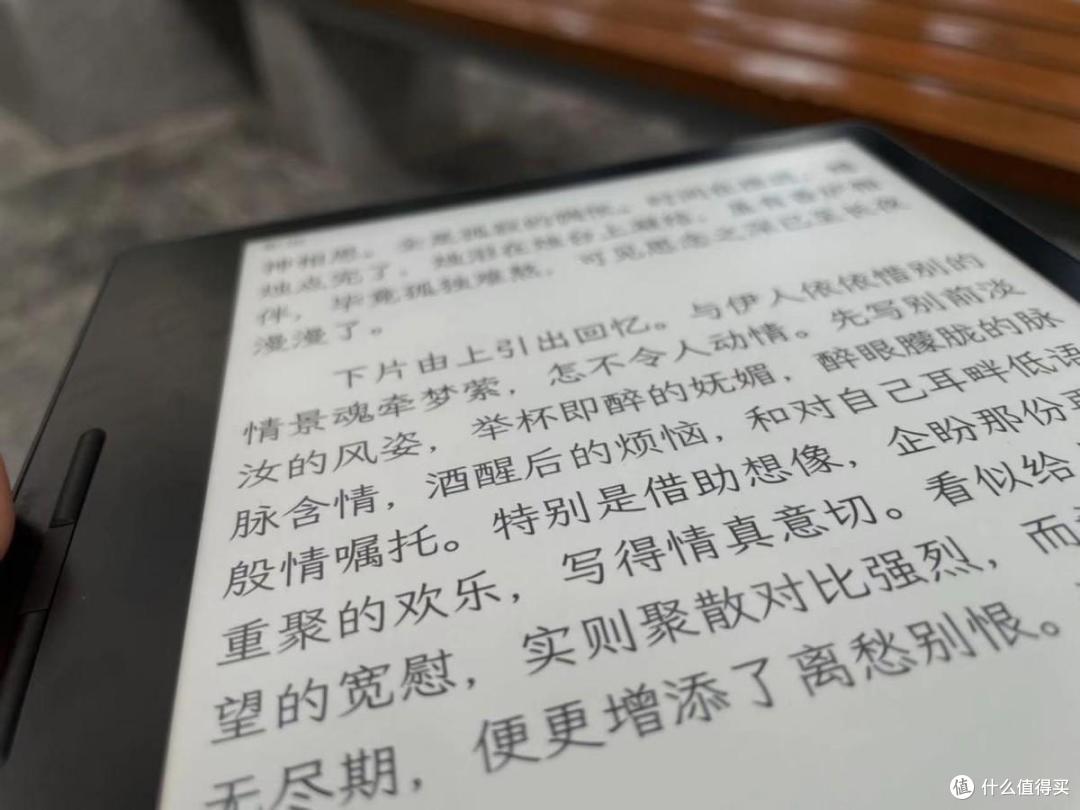 神相思。全是孤寂的惆怅。时间在推进，蜡
烛点完了，烛泪在烛台上凝结，虽有香炉相
伴，毕竟孤独难熬，可见思念之深已至长夜
漫漫了。
下片由上引出回忆。与伊人依依惜别的
情景魂牵梦萦，怎不令人动情。先写别前淡
汝的风姿，举杯即醉的妩媚，醉眼朦胧的脉
脉含情，酒醒后的烦恼，和对自己耳畔低语
殷情嘱托。特别是借助想像，企盼那份再
重聚的欢乐，写得情真意切。看似给
望的宽慰，实则聚散对比强烈，而
无尽期，便更增添了离愁别恨。
值 什么值得买